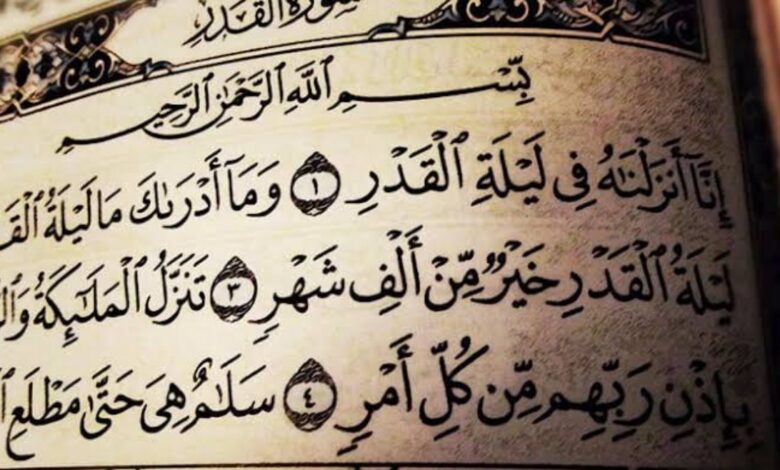 سُورَةُ القَدْرِ
بِسْمِ ٱللَّهِ ٱلرَّحْمَٰنِ ٱلرَّحِيمِ
إِنَّآ أَنزَلْنَٰهُ فِى لَيْلَةِ ٱلْقَدْرِ ١ وَمَآ أَدْرَىٰكَ مَا لَيْلَةُ
لَيْلَةُ ٱلْقَدْرِ خَيْرٌ مِّنْ أَلْفِ شَهْرٍ ٣ تَنَزَّلُ ٱلْمَلَٰٓئِكَةُ
بِإِذْنِ رَبِّهِم مِّن كُلِّ أَمْرٍ ٤ سَلَٰمٌ هِىَ حَتَّىٰ مَطْلَعِ